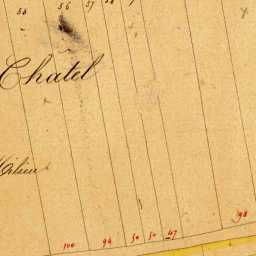 55 56 57 58
Chatel
100 94 50 50 47 98